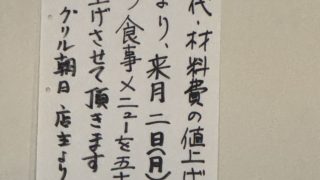 代・材料費の値上げ
より、来月二日(月)
り食事メニューを五十
上げさせて頂きます
グリル朝日 店主より